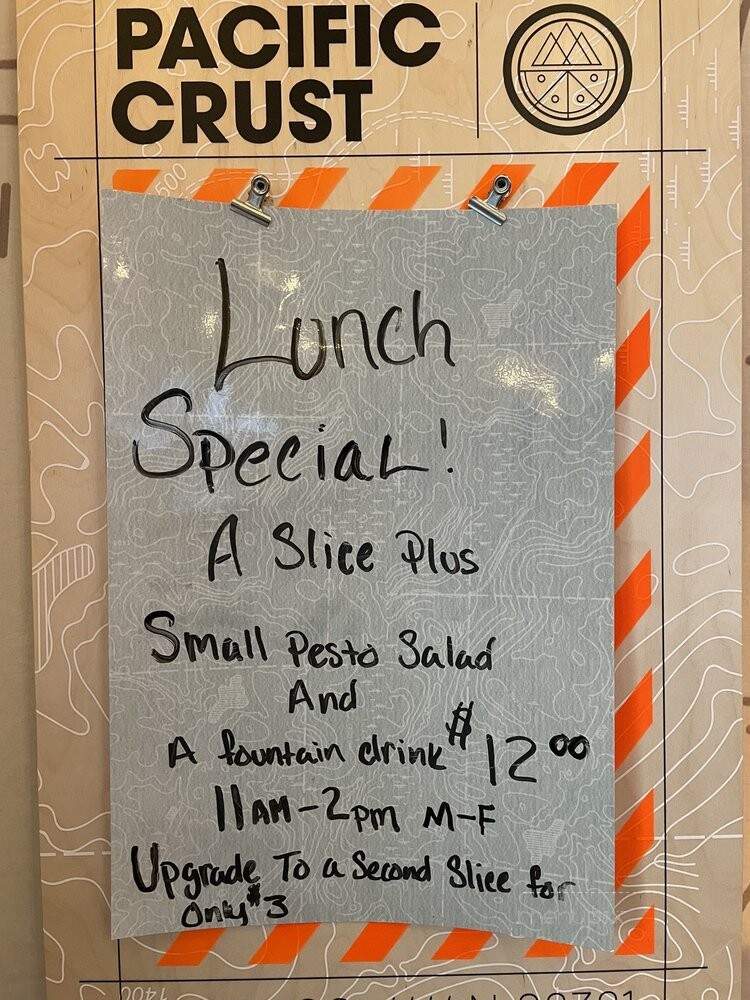 PACIFIC
CRUST
500
Lunch
Special!
A Slice Plus
Small Pesto Salad
And
A fountain drink $12⁰⁰
11AM-2pm M-F
Upgrade To a Second Slice for
Only $3
1400